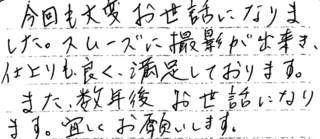 今回も大変お世話になりま
した。スムーズに撮影が出来き、
仕上りも良く満足しております。
また、数年後 お世話になり
ます。宜しくお願いします。